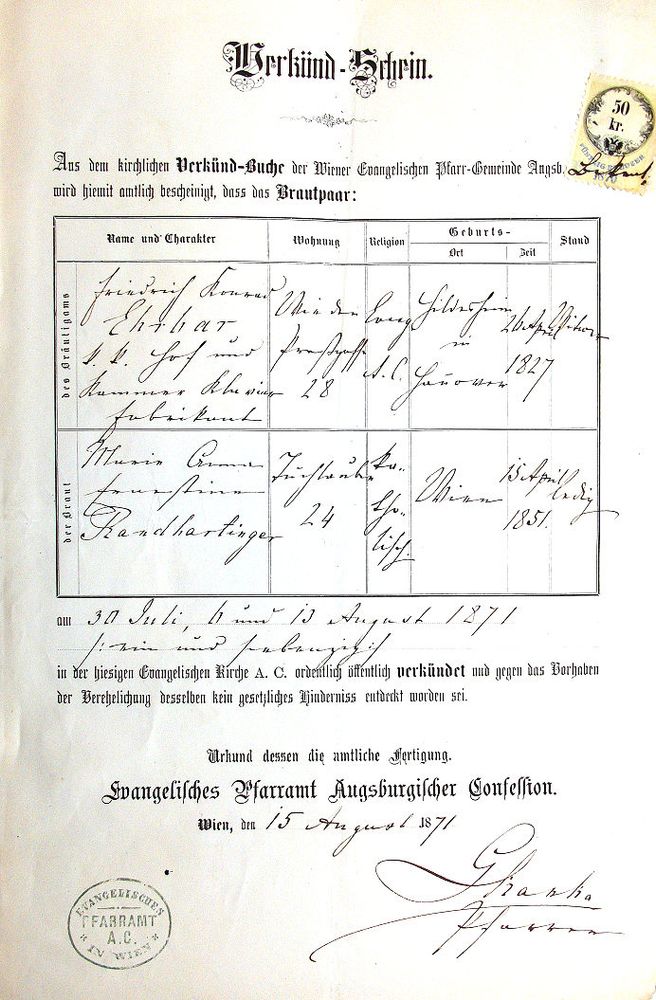 Verkünd-Schein.
50
kr.
Aus dem kirchlichen Verkünd-Buche der Wiener Evangelischen Pfarr-Gemeinde Augsb.
wird hiemit amtlich bescheinigt, dass das Brautpaar:
Name und Charakter
Wohnung
Religion
Geburts-
Ort
Zeit
Stand
des Bräutigams
Friedrich Konrad
Ehrbar
k. k. Hof und
Kammer Klavier
Fabrikant
Wieden
Preßgasse
28
Evang
A. C.
Hildesheim
in
Hanover
26 April
1827
Witwer
der Braut
Marie Anna
Ernestine
Randhartinger
Tuchlauben
24
ka-
tho-
lisch.
Wien
15 April
1851.
ledig
am 30 Juli, 6 und 13 August 1871
/: ein und siebenzig :/
in der hiesigen Evangelischen Kirche A. C. ordentlich öffentlich verkündet und gegen das Vorhaben
der Verehelichung desselben kein gesetzliches Hinderniss entdeckt worden sei.
Urkund dessen die amtliche Fertigung.
Evangelisches Pfarramt Augsburgischer Confession.
Wien, den 15 August 1871
Pfarrer
EVANGELISCHES
PFARRAMT
A.C.
IN WIEN